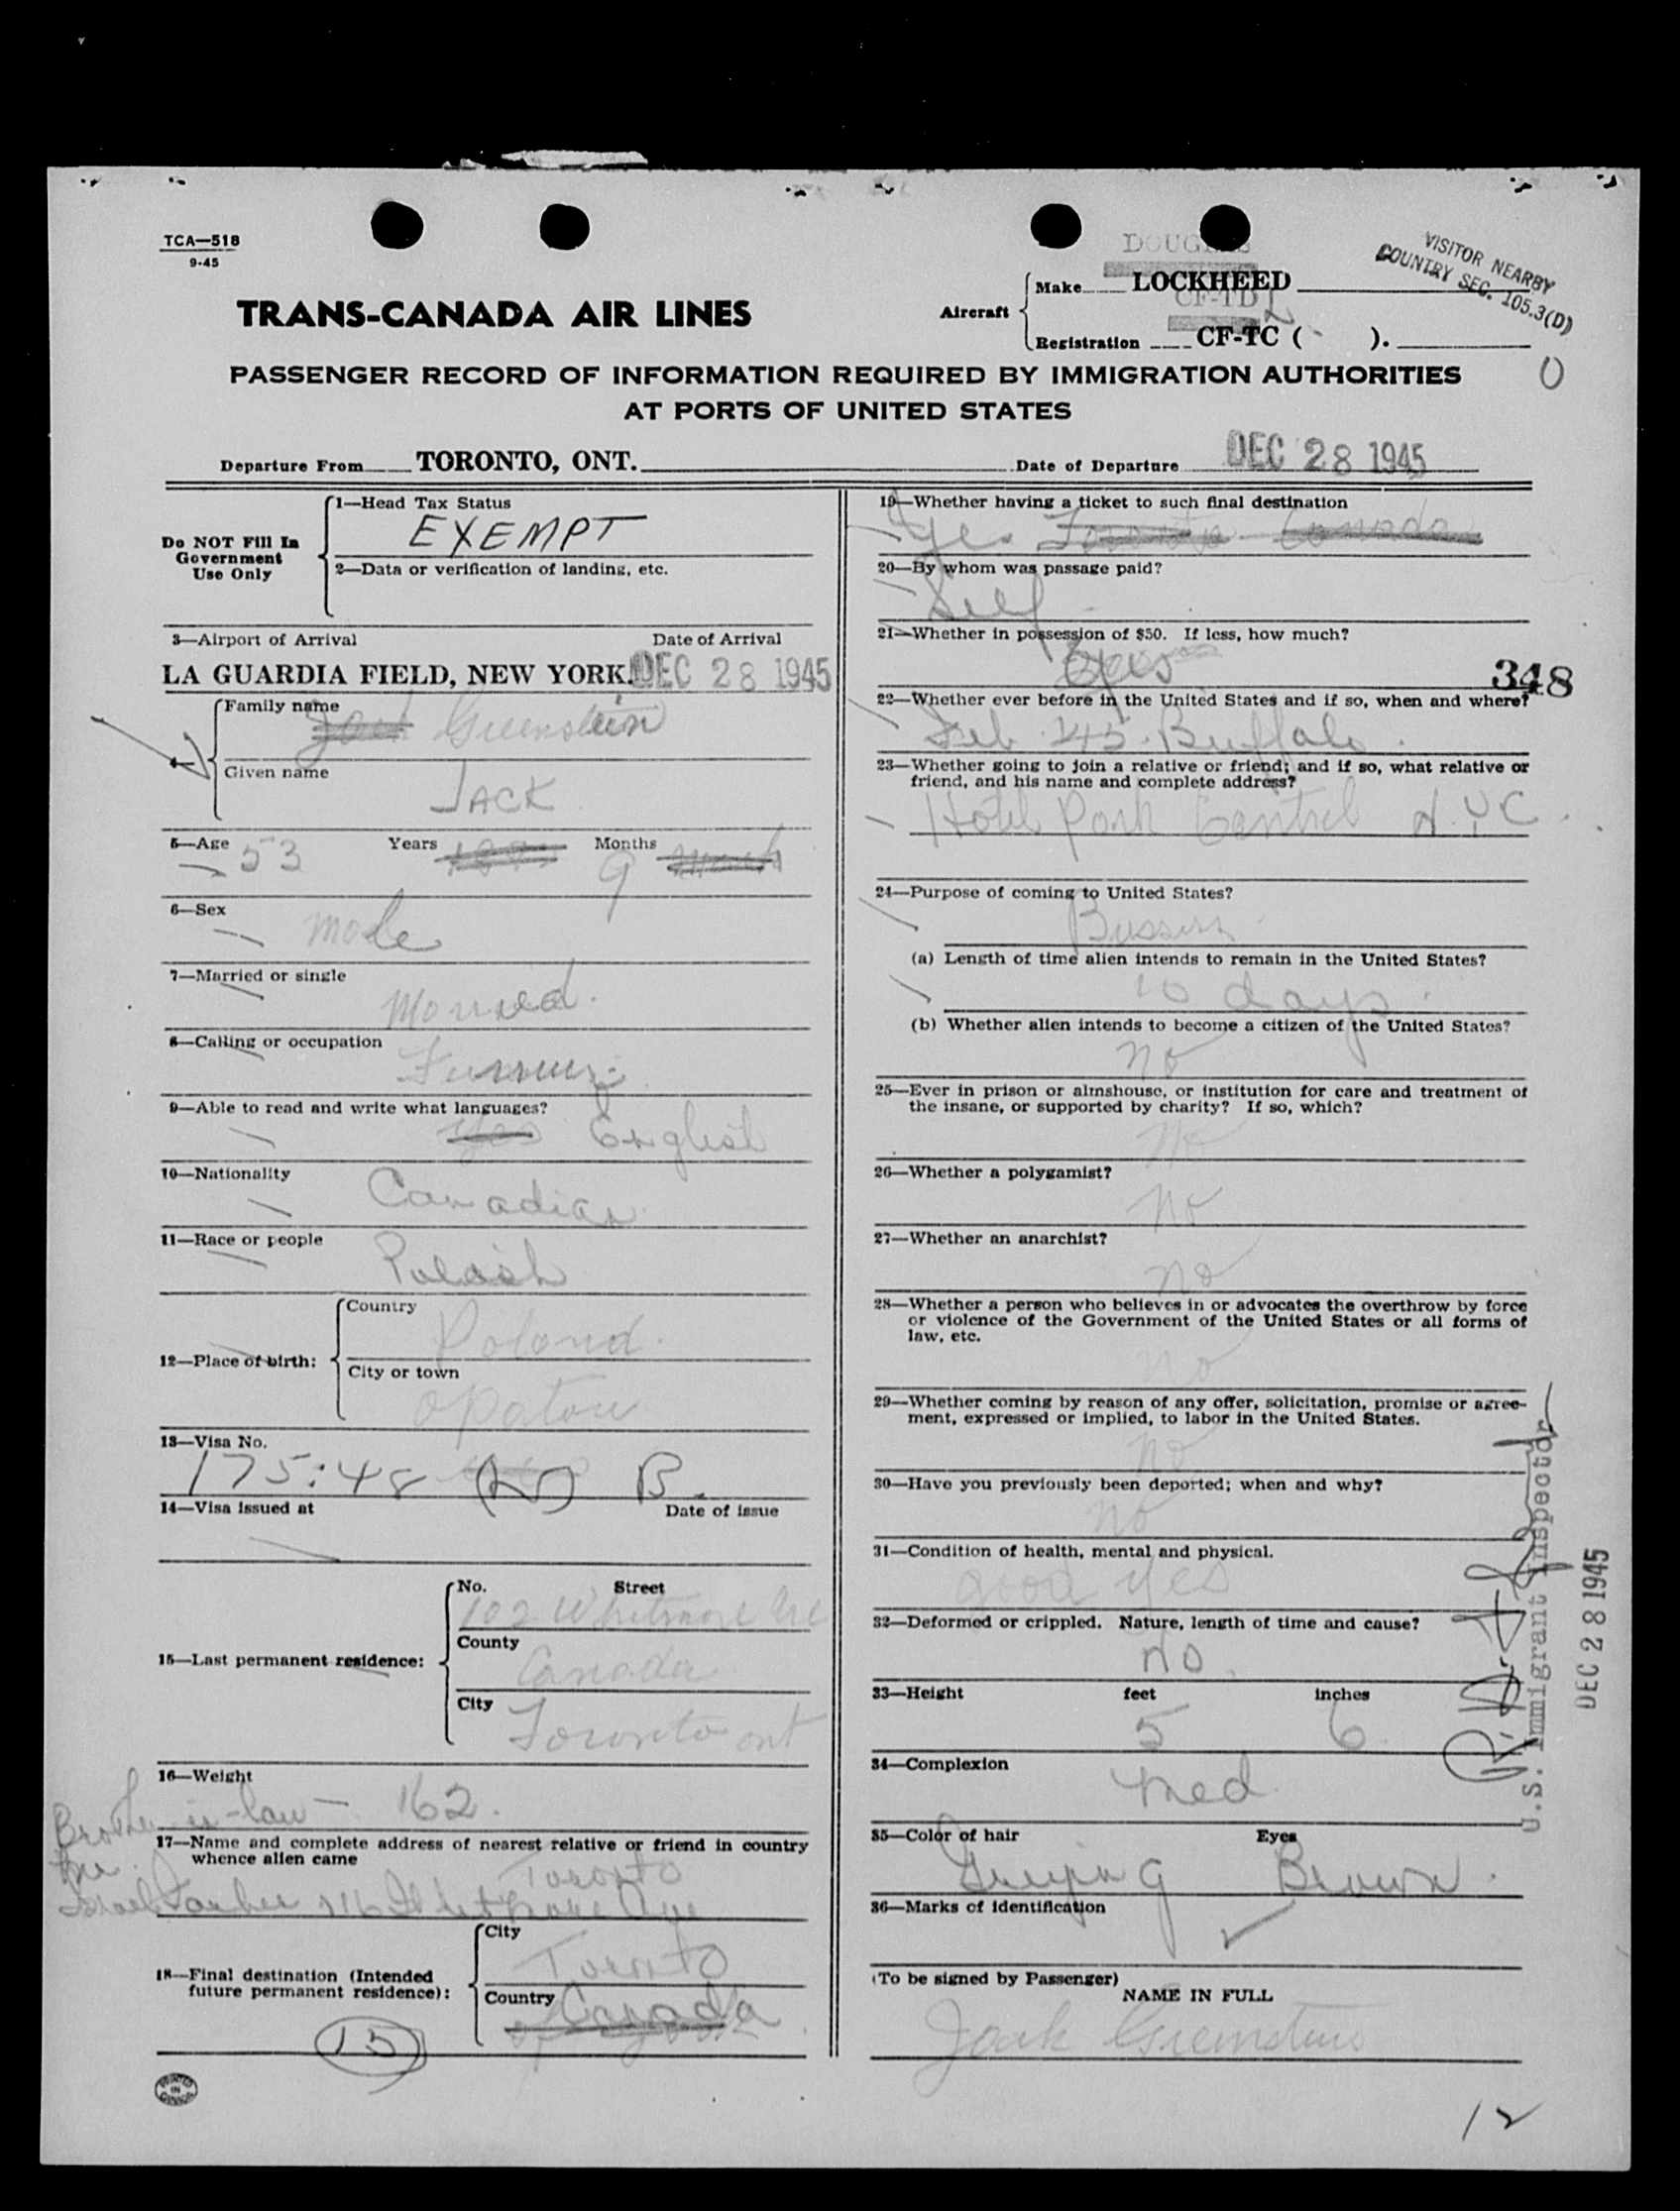 TCA—518
9-45
VISITOR NEARBY
COUNTRY SEC. 105.3(D)
TRANS-CANADA AIR LINES
Aircraft
Make LOCKHEED
CF-TD
Registration CF-TC ( ).
PASSENGER RECORD OF INFORMATION REQUIRED BY IMMIGRATION AUTHORITIES
AT PORTS OF UNITED STATES
Departure From TORONTO, ONT. Date of Departure DEC 28 1945
Do NOT Fill In
Government
Use Only
1—Head Tax Status
EXEMPT
2—Data or verification of landing, etc.
3—Airport of Arrival Date of Arrival
LA GUARDIA FIELD, NEW YORK. DEC 28 1945
Family name
Greenstein
Given name
JACK
5—Age 53 Years Months 9
6—Sex
male
7—Married or single
Married.
8—Calling or occupation
9—Able to read and write what languages?
yes English
10—Nationality
Canadian
11—Race or people
Polish
12—Place of birth:
Country
Poland.
City or town
Opatow
13—Visa No.
175:48 B.
14—Visa issued at Date of issue
15—Last permanent residence:
No. Street
102 Whitmore Ave
County
Canada
City
Toronto ont
16—Weight
162.
Brother-in-law —
17—Name and complete address of nearest relative or friend in country
whence alien came
Toronto
Israel Ave
18—Final destination (Intended
future permanent residence):
City
Toronto
Country Canada
15
PRINTED IN CANADA
19—Whether having a ticket to such final destination
Yes Toronto Canada
20—By whom was passage paid?
Self
21—Whether in possession of $50. If less, how much?
Yes
348
22—Whether ever before in the United States and if so, when and where?
Feb 45. Buffalo.
23—Whether going to join a relative or friend; and if so, what relative or
friend, and his name and complete address?
Hotel Park Central N.Y.C.
24—Purpose of coming to United States?
(a) Length of time alien intends to remain in the United States?
10 days.
(b) Whether alien intends to become a citizen of the United States?
no
25—Ever in prison or almshouse, or institution for care and treatment of
the insane, or supported by charity? If so, which?
No
26—Whether a polygamist?
No
27—Whether an anarchist?
no
28—Whether a person who believes in or advocates the overthrow by force
or violence of the Government of the United States or all forms of
law, etc.
no
29—Whether coming by reason of any offer, solicitation, promise or agree-
ment, expressed or implied, to labor in the United States.
no
30—Have you previously been deported; when and why?
no
31—Condition of health, mental and physical.
good yes
32—Deformed or crippled. Nature, length of time and cause?
no.
33—Height feet inches
5 6
34—Complexion
Med
35—Color of hair Eyes
Greying Brown.
36—Marks of identification
(To be signed by Passenger)
NAME IN FULL
Jack Greenstein
U.S. Immigrant Inspector
DEC 28 1945
12